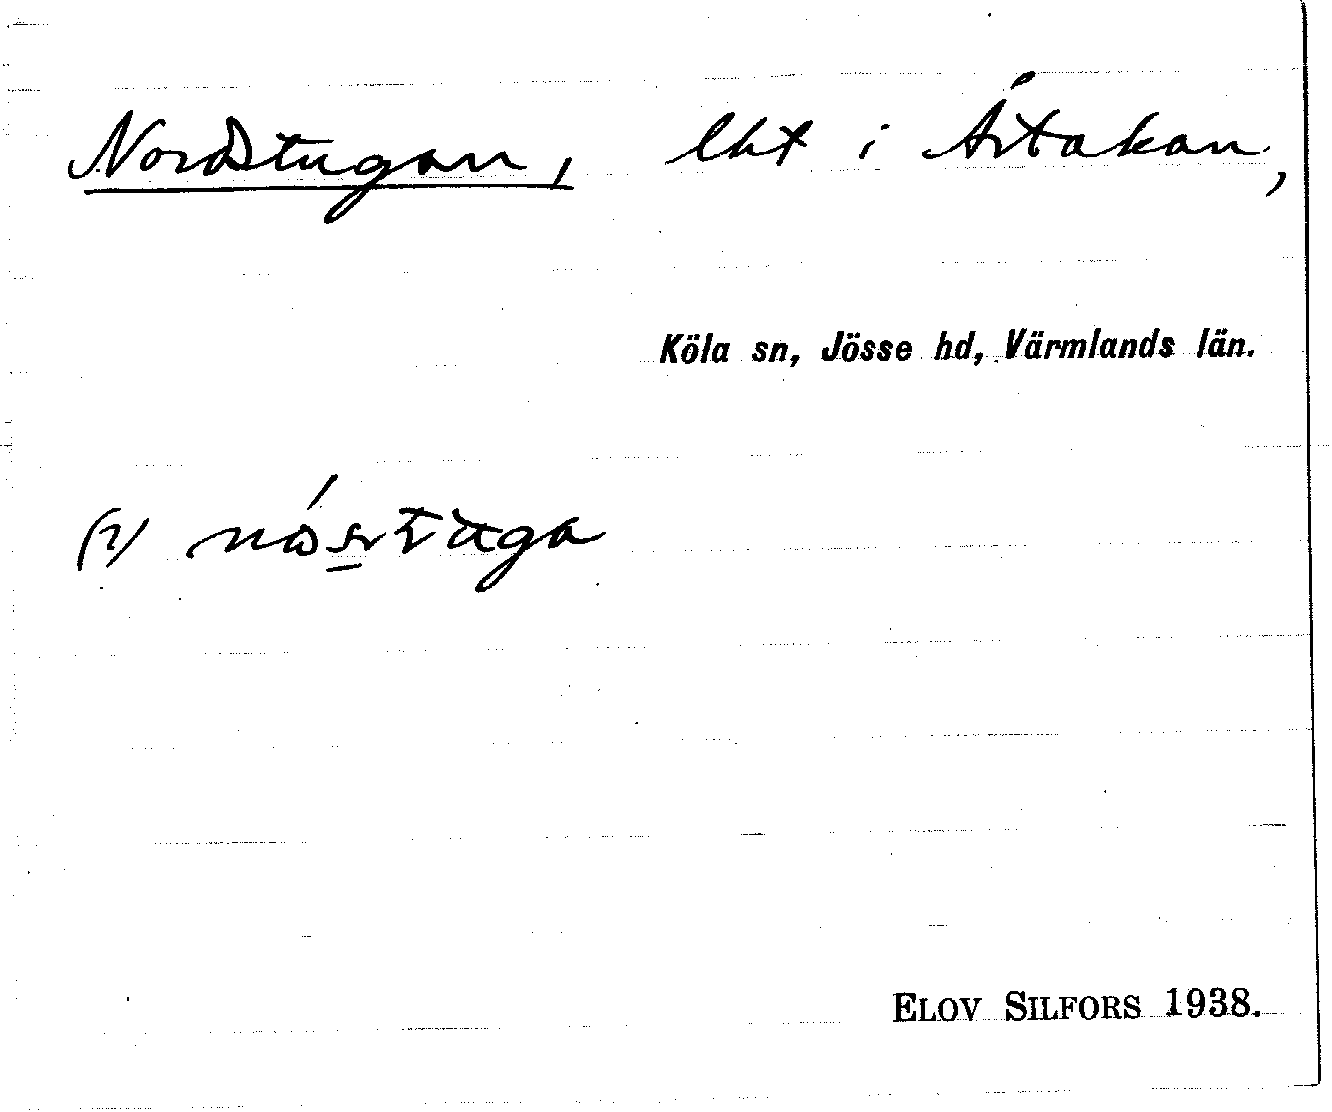 Nordstugan, lht i Årtakan,
Köla sn, Jösse hd, Värmlands län.
(2)
ELOV SILFORS 1938.